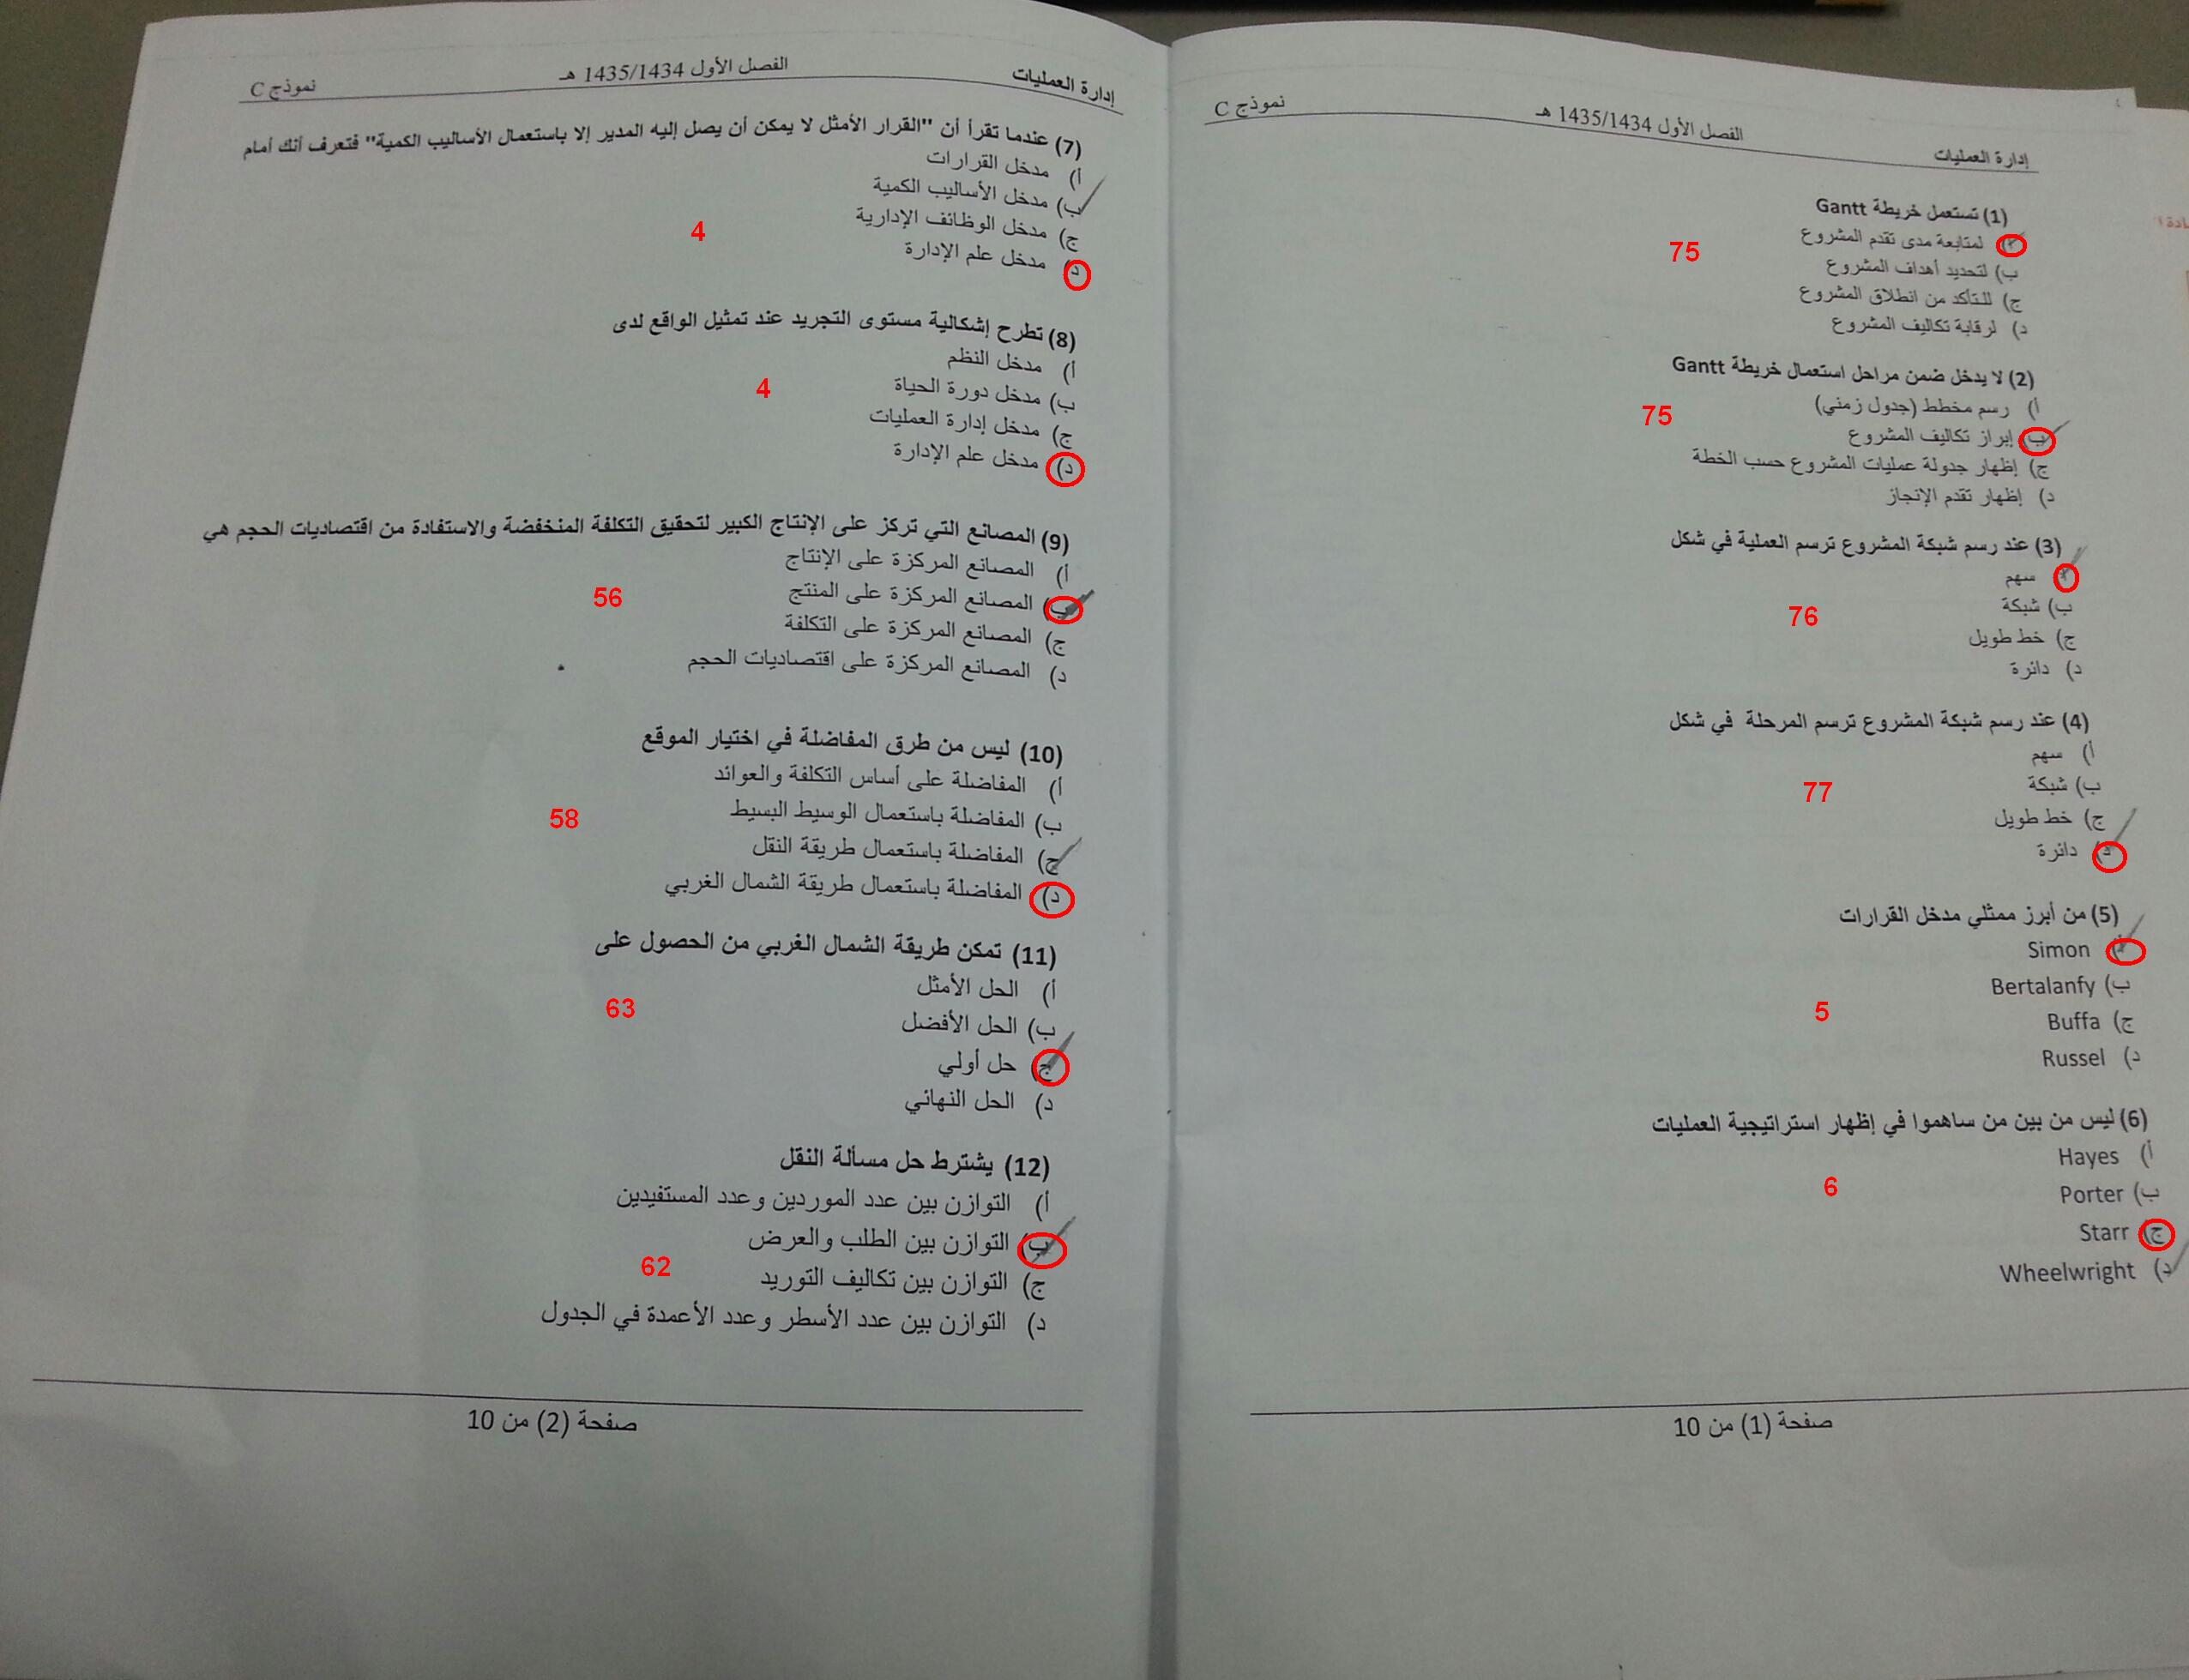 إدارة العمليات الفصل الأول 1435/1434 هـ نموذج C
(1) تستعمل خريطة Gantt
لمتابعة مدى تقدم المشروع
75
ب) لتحديد أهداف المشروع
ج) للتأكد من انطلاق المشروع
د) لرقابة تكاليف المشروع
(2) لا يدخل ضمن مراحل استعمال خريطة Gantt
أ) رسم مخطط (جدول زمني)
75
ب) إبراز تكاليف المشروع
ج) إظهار جدولة عمليات المشروع حسب الخطة
د) إظهار تقدم الإنجاز
(3) عند رسم شبكة المشروع ترسم العملية في شكل
سهم
ب) شبكة
76
ج) خط طويل
د) دائرة
(4) عند رسم شبكة المشروع ترسم المرحلة في شكل
أ) سهم
ب) شبكة
77
ج) خط طويل
د) دائرة
(5) من أبرز ممثلي مدخل القرارات
أ) Simon
ب) Bertalanfy
5
ج) Buffa
د) Russel
(6) ليس من بين من ساهموا في إظهار استراتيجية العمليات
أ) Hayes
6
ب) Porter
ج) Starr
د) Wheelwright
صفحة (1) من 10
إدارة العمليات الفصل الأول 1435/1434 هـ نموذج C
(7) عندما تقرأ أن "القرار الأمثل لا يمكن أن يصل إليه المدير إلا باستعمال الأساليب الكمية" فتعرف أنك أمام
أ) مدخل القرارات
ب) مدخل الأساليب الكمية
ج) مدخل الوظائف الإدارية
4
د) مدخل علم الإدارة
(8) تطرح إشكالية مستوى التجريد عند تمثيل الواقع لدى
أ) مدخل النظم
ب) مدخل دورة الحياة
4
ج) مدخل إدارة العمليات
د) مدخل علم الإدارة
(9) المصانع التي تركز على الإنتاج الكبير لتحقيق التكلفة المنخفضة والاستفادة من اقتصاديات الحجم هي
أ) المصانع المركزة على الإنتاج
ب) المصانع المركزة على المنتج
56
ج) المصانع المركزة على التكلفة
د) المصانع المركزة على اقتصاديات الحجم
(10) ليس من طرق المفاضلة في اختيار الموقع
أ) المفاضلة على أساس التكلفة والعوائد
ب) المفاضلة باستعمال الوسيط البسيط
58
ج) المفاضلة باستعمال طريقة النقل
د) المفاضلة باستعمال طريقة الشمال الغربي
(11) تمكن طريقة الشمال الغربي من الحصول على
أ) الحل الأمثل
63
ب) الحل الأفضل
ج) حل أولي
د) الحل النهائي
(12) يشترط حل مسألة النقل
أ) التوازن بين عدد الموردين وعدد المستفيدين
ب) التوازن بين الطلب والعرض
62
ج) التوازن بين تكاليف التوريد
د) التوازن بين عدد الأسطر وعدد الأعمدة في الجدول
صفحة (2) من 10